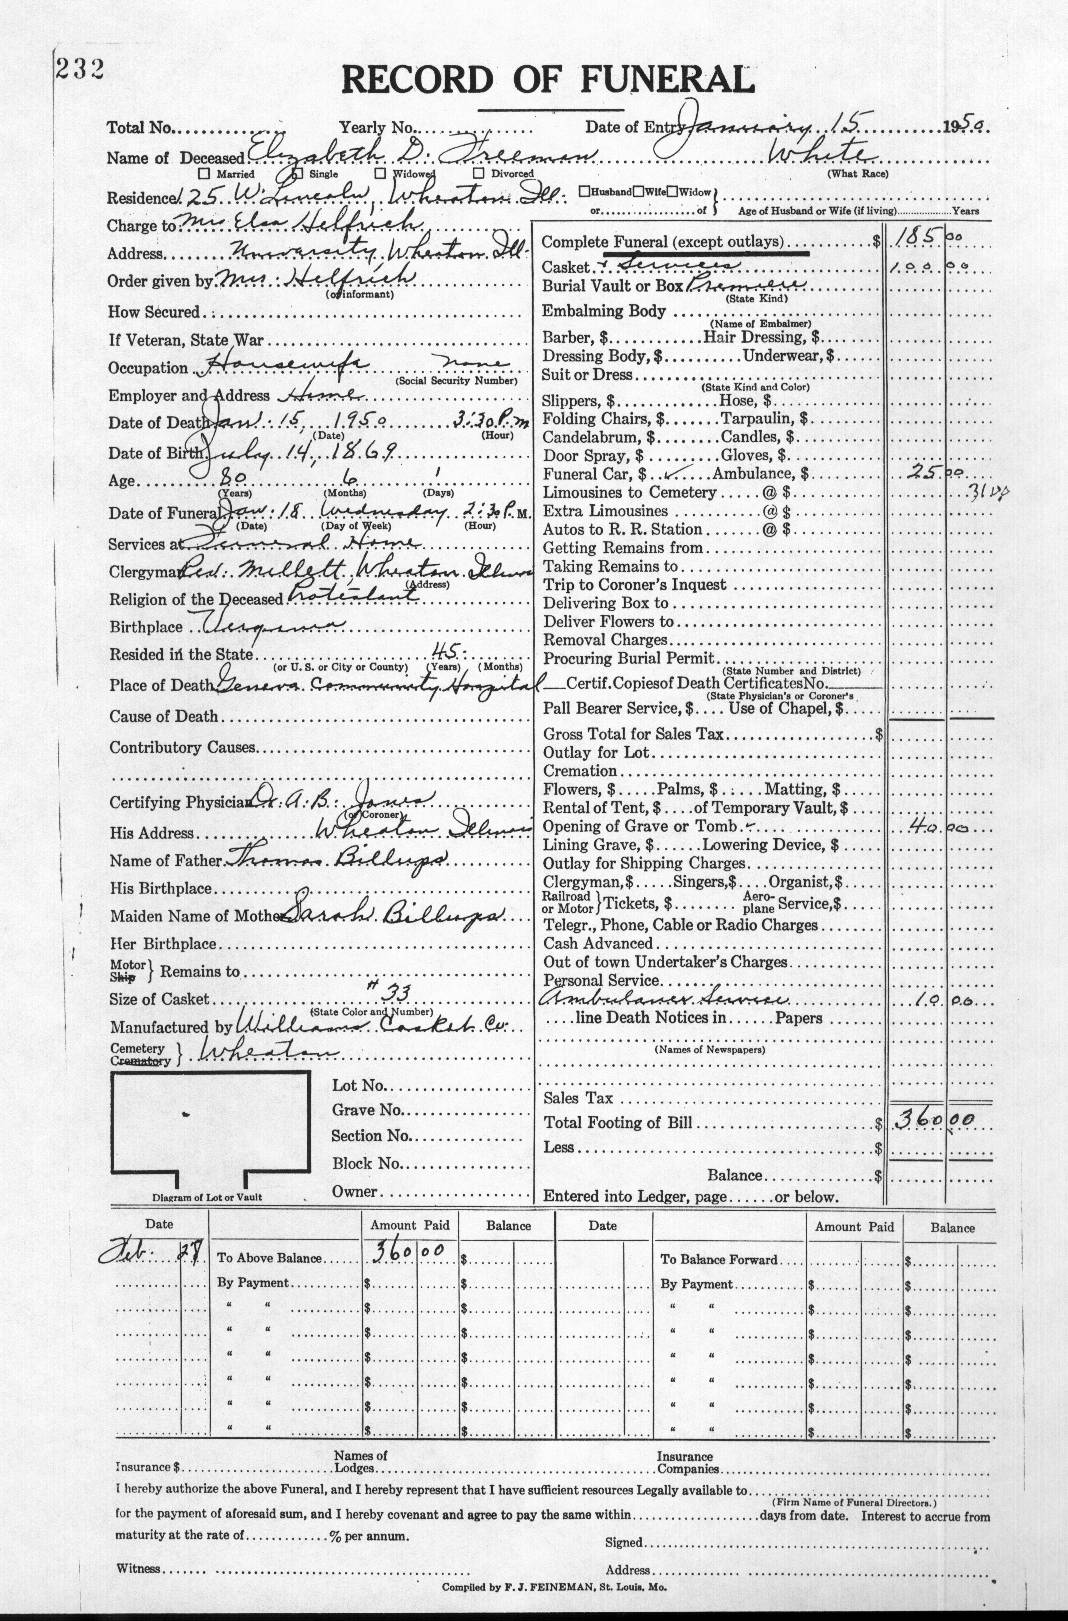 232
RECORD OF FUNERAL
Total No. Yearly No. Date of Entry January 15 1950.
Name of Deceased Elizabeth D. Freeman White
Married Single Widowed Divorced (What Race)
Residence 125 W. Lincoln, Wheaton, Ill. Husband Wife Widow
or of Age of Husband or Wife (if living) Years
Charge to Mrs Elsa Helfrich
Address University Wheaton Ill.
Order given by Mrs. Helfrich
(or informant)
How Secured
If Veteran, State War
Occupation Housewife none
(Social Security Number)
Employer and Address Home
Date of Death Jan. 15, 1950 3:30 P.m
(Date) (Hour)
Date of Birth July 14, 1869
Age 80 6 1
(Years) (Months) (Days)
Date of Funeral Jan. 18 Wednesday 2:30 P.M.
(Date) (Day of Week) (Hour)
Services at Funeral Home
Clergyman Rev. Millett, Wheaton Illinois
(Address)
Religion of the Deceased Protestant
Birthplace
Resided in the State 45
(or U. S. or City or County) (Years) (Months)
Place of Death Geneva Community Hospital
Cause of Death
Contributory Causes
Certifying Physician Dr. A. B. Jones
(or Coroner)
His Address Wheaton Illinois
Name of Father Thomas Billups
His Birthplace
Maiden Name of Mother Sarah Billups
Her Birthplace
Motor
Ship } Remains to
Size of Casket #33
(State Color and Number)
Manufactured by Williams Casket Co.
Cemetery
Crematory } Wheaton
Lot No.
Grave No.
Section No.
Block No.
Owner
Diagram of Lot or Vault
Complete Funeral (except outlays) $ 185 00
Casket & Services 100 00
Burial Vault or Box Premiere
(State Kind)
Embalming Body
(Name of Embalmer)
Barber, $ Hair Dressing, $
Dressing Body, $ Underwear, $
Suit or Dress
(State Kind and Color)
Slippers, $ Hose, $
Folding Chairs, $ Tarpaulin, $
Candelabrum, $ Candles, $
Door Spray, $ Gloves, $
Funeral Car, $ ✓ Ambulance, $ 25 00
Limousines to Cemetery @ $
Extra Limousines @ $
Autos to R. R. Station @ $
Getting Remains from
Taking Remains to
Trip to Coroner's Inquest
Delivering Box to
Deliver Flowers to
Removal Charges
Procuring Burial Permit
(State Number and District)
Certif. Copies of Death Certificates No.
(State Physician's or Coroner's
Pall Bearer Service, $ Use of Chapel, $
Gross Total for Sales Tax $
Outlay for Lot
Cremation
Flowers, $ Palms, $ Matting, $
Rental of Tent, $ of Temporary Vault, $
Opening of Grave or Tomb ✓ 40 00
Lining Grave, $ Lowering Device, $
Outlay for Shipping Charges
Clergyman, $ Singers, $ Organist, $
Railroad or Motor } Tickets, $ Aero-plane Service, $
Telegr., Phone, Cable or Radio Charges
Cash Advanced
Out of town Undertaker's Charges
Personal Service
Ambulance Service 10 00
line Death Notices in Papers
(Names of Newspapers)
Sales Tax
Total Footing of Bill $ 360 00
Less $
Balance $
Entered into Ledger, page or below.
Date Amount Paid Balance Date Amount Paid Balance
Feb. 27 To Above Balance 360 00 $ To Balance Forward $
By Payment $ $ By Payment $ $
" " $ $ " " $ $
" " $ $ " " $ $
" " $ $ " " $ $
" " $ $ " " $ $
" " $ $ " " $ $
" " $ $ " " $ $
Insurance $ Names of Lodges Insurance Companies
I hereby authorize the above Funeral, and I hereby represent that I have sufficient resources Legally available to
(Firm Name of Funeral Directors.)
for the payment of aforesaid sum, and I hereby covenant and agree to pay the same within days from date. Interest to accrue from
maturity at the rate of % per annum.
Signed
Witness Address
Compiled by F. J. FEINEMAN, St. Louis, Mo.